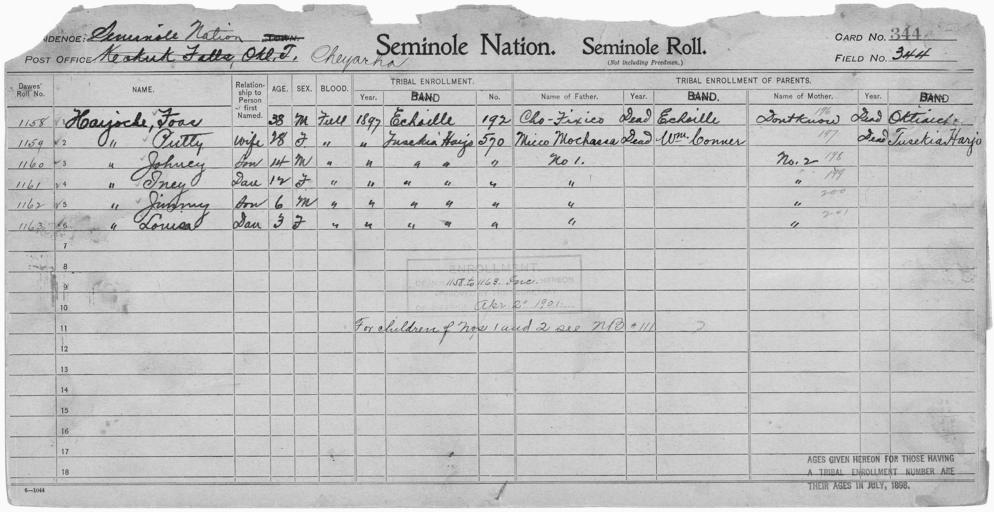 IDENCE: Seminole Nation TOWN. Seminole Nation. Seminole Roll. CARD NO. 344
POST OFFICE Keokuk Falls, Okl. T. Cheyarha (Not including Freedmen.) FIELD NO. 344
Dawes' Roll No. NAME. Relationship to Person first Named. AGE. SEX. BLOOD. TRIBAL ENROLLMENT. TRIBAL ENROLLMENT OF PARENTS.
Year. BAND No. Name of Father. Year. BAND. Name of Mother. Year. BAND
1158 Harjoche, Foos 38 M Full 1897 Echoille 192 Cho-Fixico Dead Echoille Dontknow 196 Dead
1159 2 " Putty Wife 28 F " " Tusekia Harjo 570 Micco Mochassa Dead Wm Conner 197 Dead Tusekia Harjo
1160 3 " Johncy Son 14 M " " " " " No 1. No. 2 198
1161 4 " Incy Dau 12 F " " " " " " " 199
1162 5 " Jimmy Son 6 M " " " " " " " 200
1163 6 " Louisa Dau 3 F " " " " " " " 201
7
8
ENROLLMENT
9 1158 to 1163. Inc.
10 Apr 2" 1901.
11 For children of Nos 1 and 2 see NB # 111
12
13
14
15
16
17
18
AGES GIVEN HEREON FOR THOSE HAVING
A TRIBAL ENROLLMENT NUMBER ARE
THEIR AGES IN JULY, 1898.
6—1044